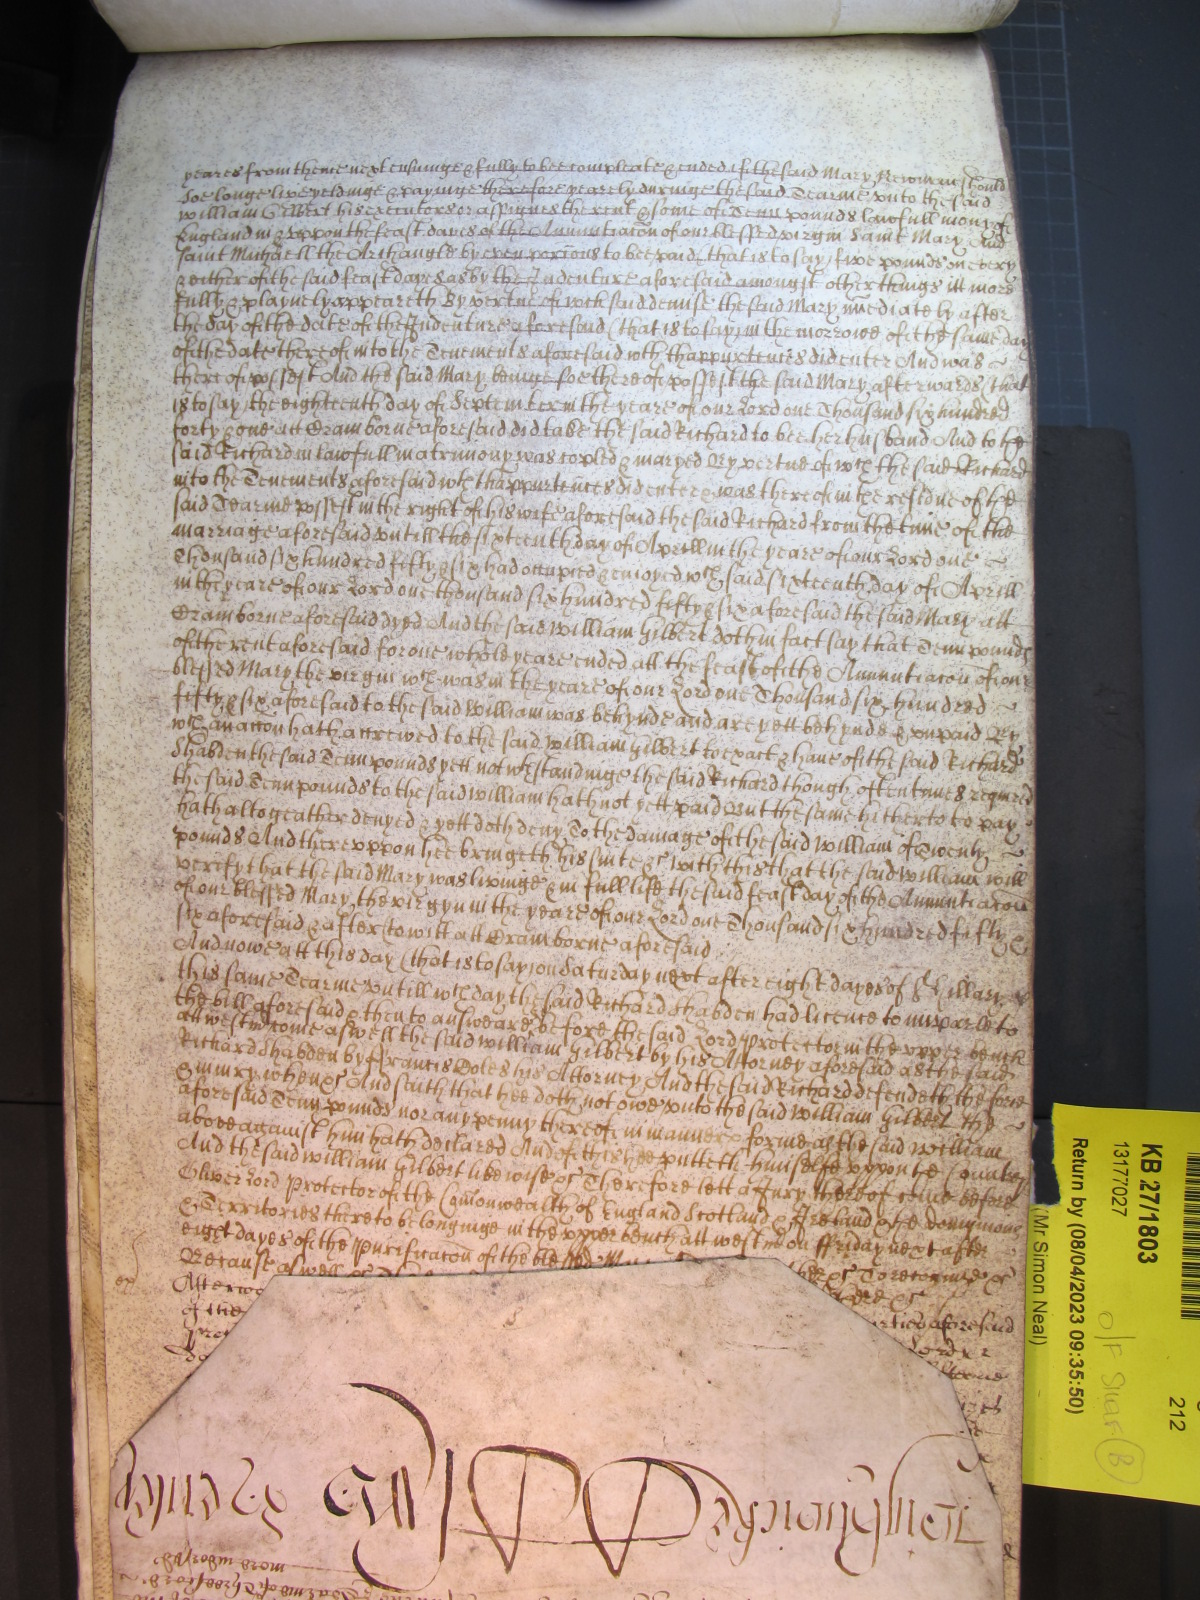 yeares from thence next ensuinge & fully to bee compleate & ended if the said Mary Newman should
soe longe live yeldinge & payinge therefore yearely duringe the said Tearme unto the said
William Gilbert his executors or assignes the rent & some of Tenn pounds lawfull mony of
England in & uppon the feast dayes of the Annuntiacon of our blessed virgin Saint Mary And
Saint Michaell the Archangle by even porcons to bee paid (that is to say) five pounds on every
& either of the said feast dayes as by the Indenture aforesaid amongst other things itt more
fully & playnely appeareth By vertue of wch said demise the said Mary imediately after
the day of the date of the Indenture aforesaid (that is to say) in the morrowe of the same day
of the date thereof into the Tenements aforesaid wth thappurtences did enter And was
thereof possest And the said Mary beinge soe thereof possest the said Mary afterwards (that
is to say) the eighteenth day of September in the yeare of our Lord one Thousand six hundred
forty & one att Cramborne aforesaid did take the said Richard to bee her husband And to the
said Richard in lawfull matrimony was copled & maryed By vertue of wch the said Richard
into the Tenements aforesaid wth thappurtences did enter & was thereof in the residue of the
said Tearme possest in the right of his wife aforesaid the said Richard from the time of the
marriage aforesaid untill the sixteenth day of Aprill in the yeare of our Lord one
Thousand six hundred fifty & six had occupied & enjoyed wch said sixteenth day of Aprill
in the yeare of our Lord one thousand six hundred fifty & six aforesaid the said Mary att
Cramborne aforesaid dyed And the said William Gilbert doth in fact say that Tenn pounds
of the rent aforesaid for one whole yeare ended att the feast of the Annuntiacon of our
blessed Mary the virgin wch was in the yeare of our Lord one Thousand six hundred
fifty & six aforesaid to the said William was behynde and are yett behynde & unpaid By
wch an accon hath accrewed to the said William Gilbert to exact & have of the said Richard
Shabden the said Tenn pounds yett notwthstandinge the said Richard though oftentimes required
the said Tenn pounds to the said William hath not yett paid But the same hitherto to pay
hath altogeather denyed & yett doth deny To the damage of the said William of Twenty
pounds And thereuppon hee bringeth his suite &c with this that the said William will
verify that the said Mary was livinge & in full life the said feast day of the Annuntiacon
of our blessed Mary the virgyn in the yeare of our Lord one Thousand six hundred fifty &
six aforesaid & after (to witt) att Cramborne aforesaid
And nowe att this day (that is to say) on Saturday next after eight dayes of St Hillary
this same Tearme untill wch day the said Richard Shabden had licence to imparle to
the bill aforesaid & then to answeare before the said Lord Protector in the upper bench
att westm come aswell the said William Gilbert by his Attorney aforesaid as the said
Richard Shabden by Francis Coles his Attorney And the said Richard defendeth the force
& iniury when &c And saith that hee doth not owe unto the said William Gilbert the
aforesaid Tenn pounds nor any penny thereof in manner & forme as the said William
above against him hath declared And of this hee putteth himselfe uppon the Country
And the said William Gilbert likewise &c Therefore lett a Jury thereof come before
Oliver Lord Protector of the Comonwealth of England Scotland & Ireland & the dominions
& Territories thereto belonginge in the upper bench att westm on ffriday next after
eight dayes of the Purificacon of the blessed
Because aswell &c To recognize &c
Afterw
of the parties aforesaid
KB 27/1803
13177027
Return by (08/04/2023 09:35:50)
(Mr Simon Neal)
212
O/F
B